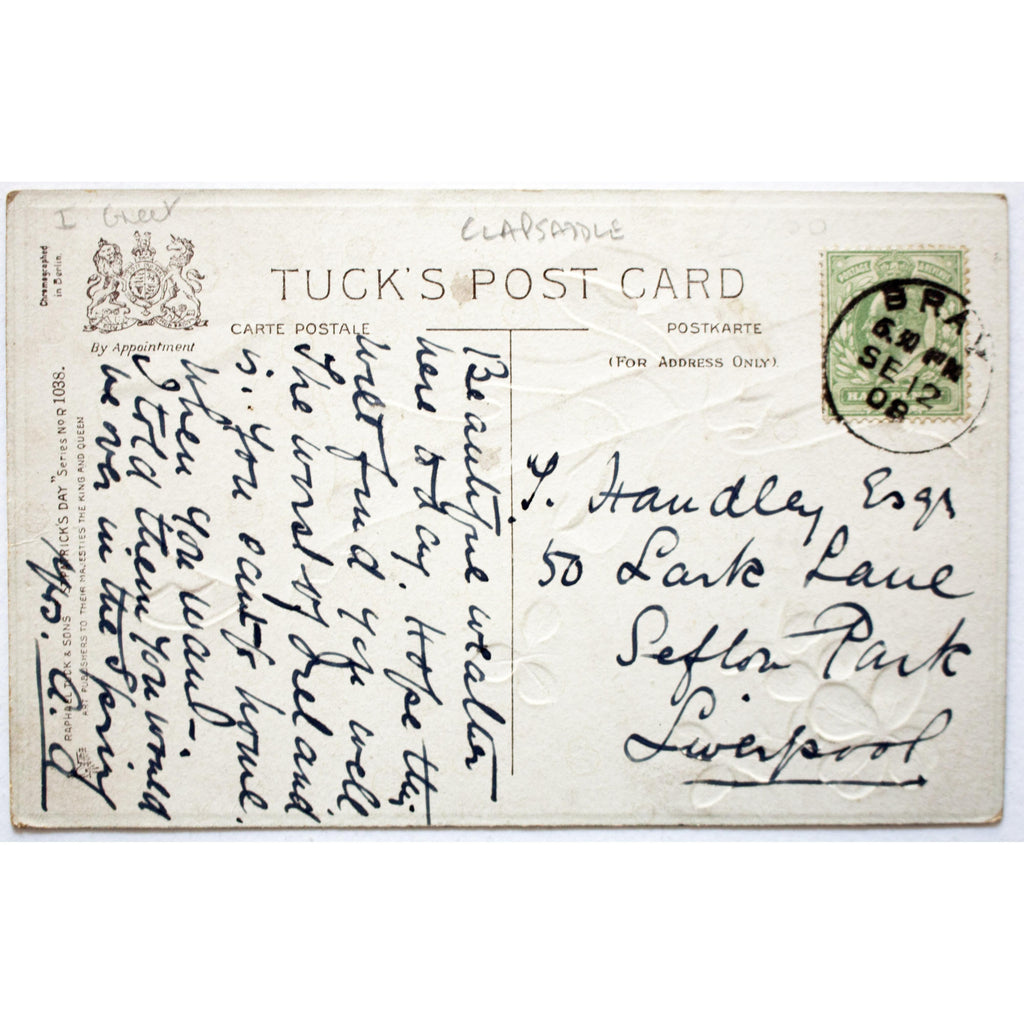 I Greet
CLAPSADDLE
Chromographed
in Berlin.
By Appointment
TUCK'S POST CARD
CARTE POSTALE
POSTKARTE
(FOR ADDRESS ONLY).
POSTAGE
HALFPENNY
BRAY
6.30 PM
SE 12
08
Beautiful weather
here today. Hope this
will find you well
The worst of Ireland
is. You can't home.
when you want-.
I told them you would
be over in the Spring
yrs.
RAPHAEL TUCK & SONS "ST PATRICK'S DAY" Series No R 1038.
ART PUBLISHERS TO THEIR MAJESTIES THE KING AND QUEEN
Handley Esqr
50 Lark Lane
Sefton Park
Liverpool